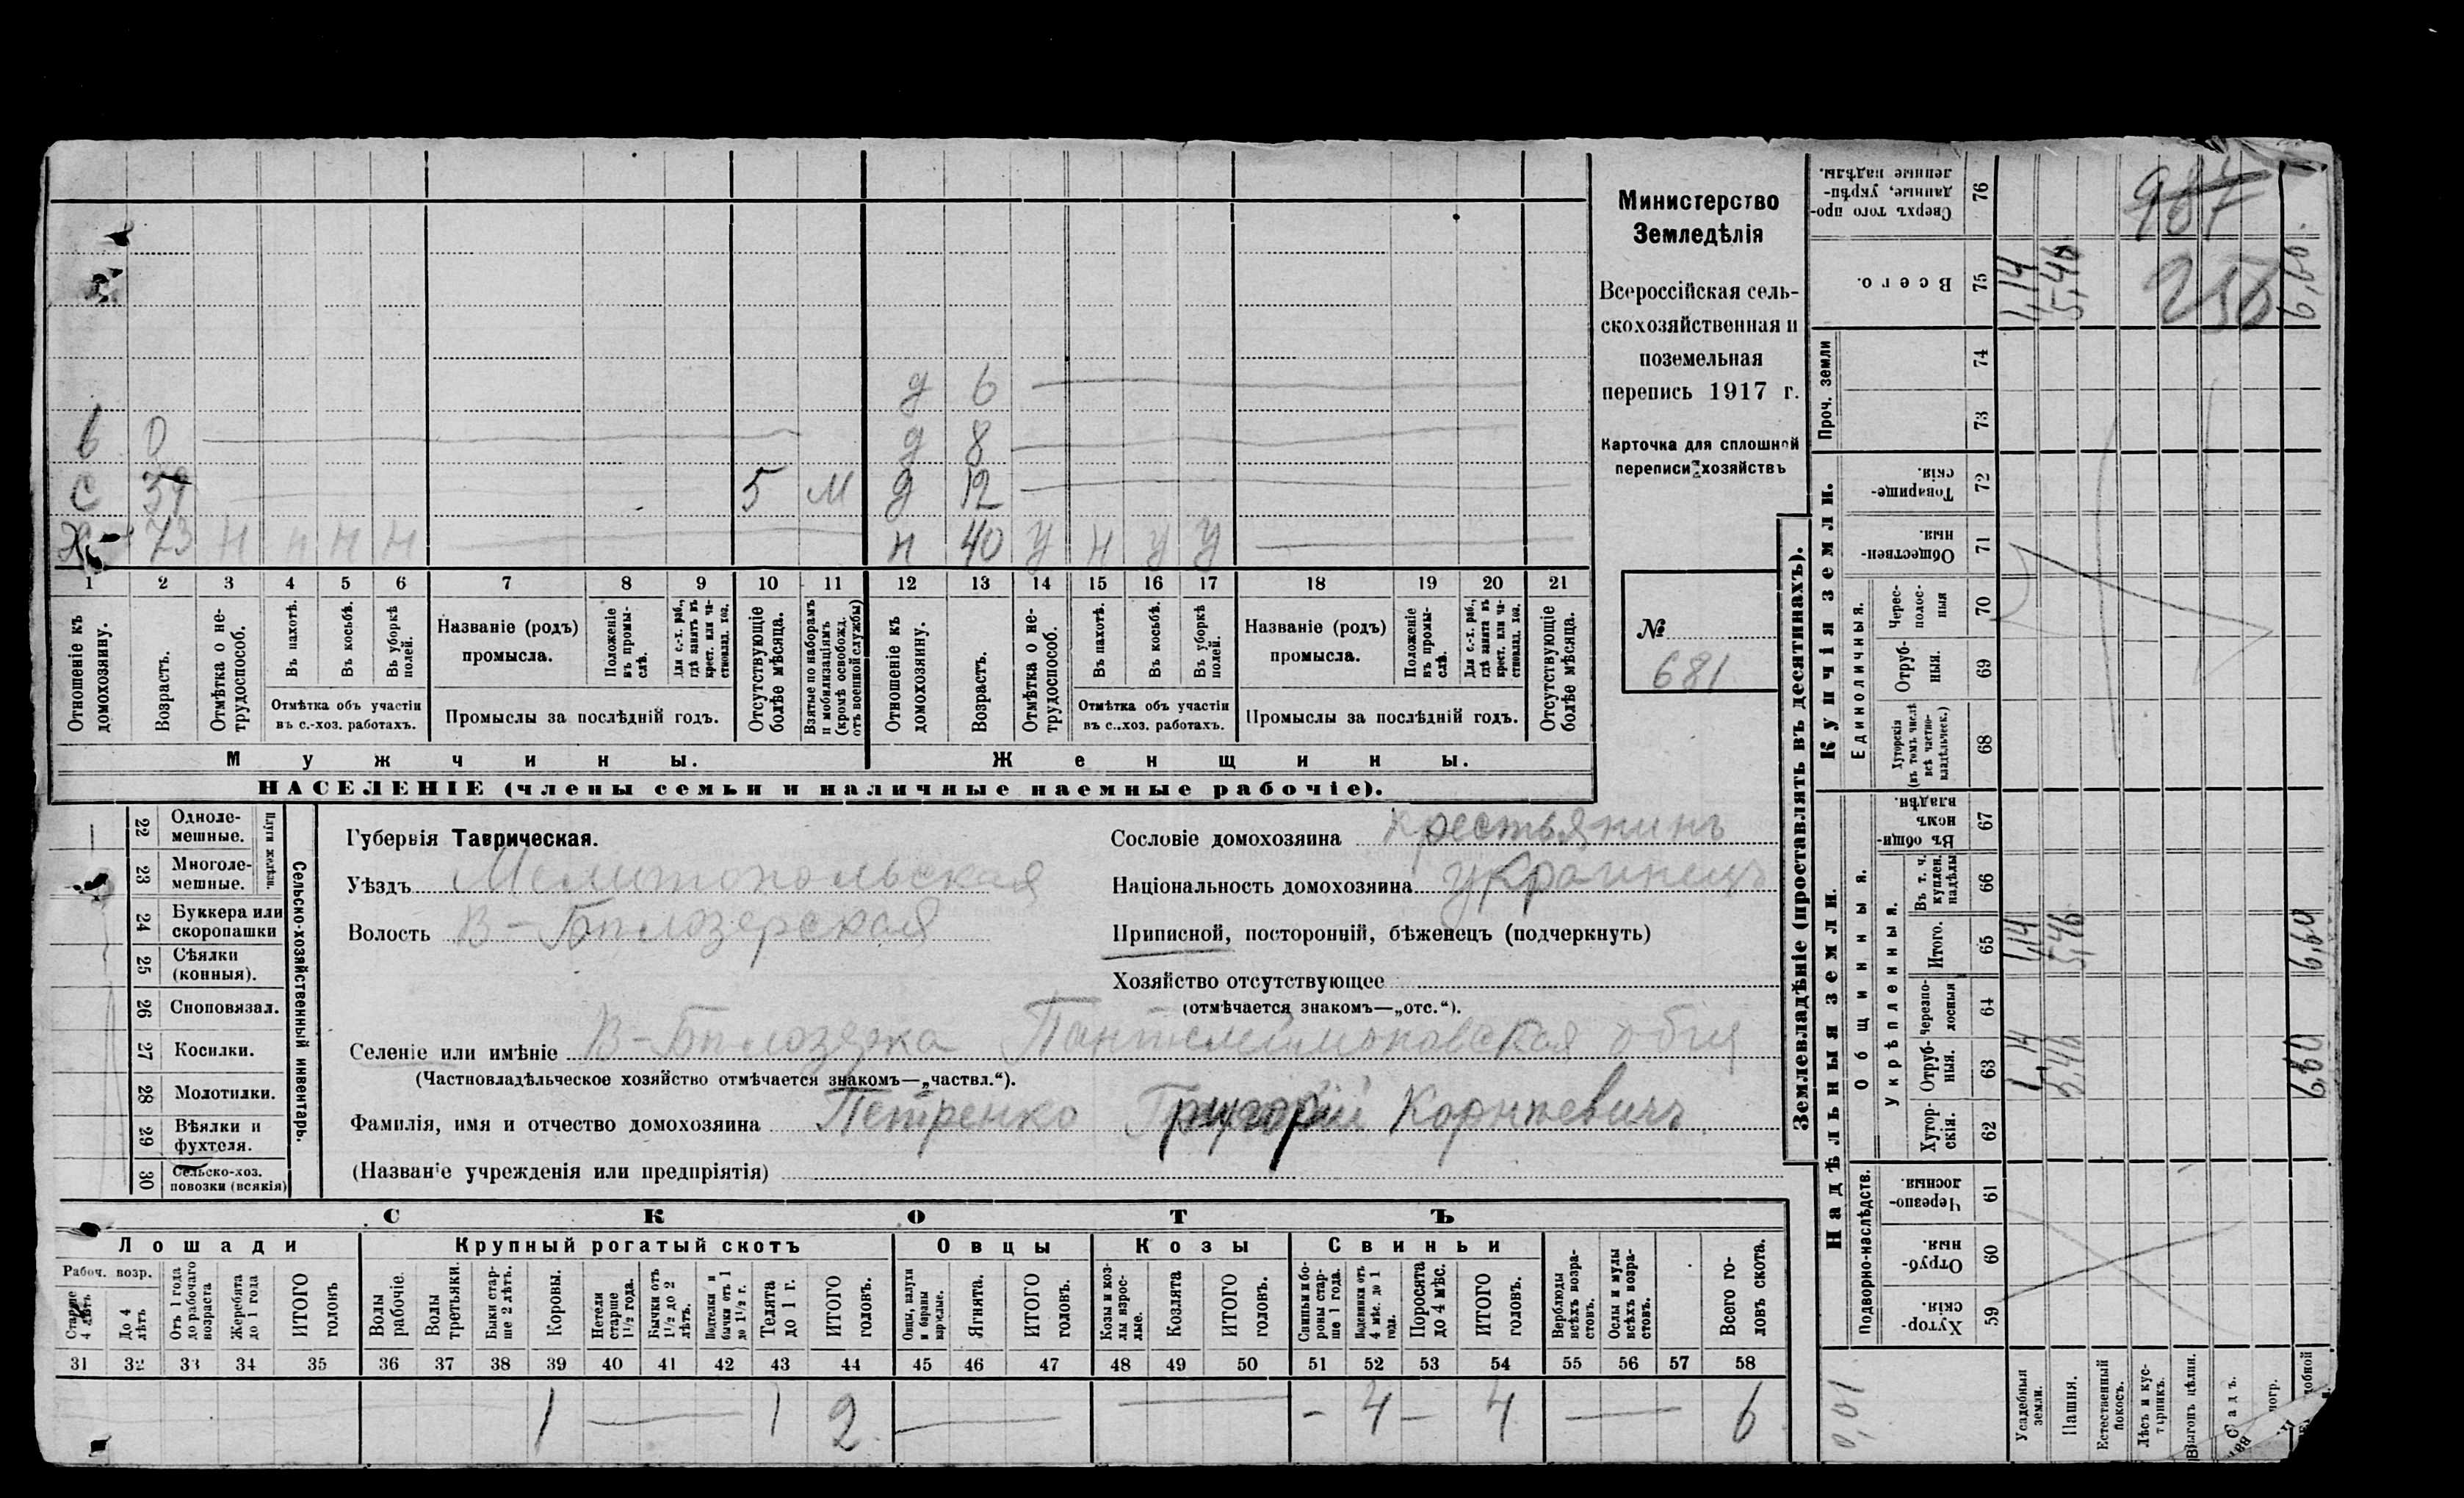 д 6
6 0 д 8
С 39 5 М д 12
Х 73 Н Н Н Н н 40 У Н У У
1 2 3 4 5 6 7 8 9 10 11 12 13 14 15 16 17 18 19 20 21
Отношеніе къ домохозяину.
Возрастъ.
Отмѣтка о не-трудоспособ.
Въ пахотѣ.
Въ косьбѣ.
Въ уборкѣ полей.
Отмѣтка объ участіи
въ с.-хоз. работахъ.
Названіе (родъ)
промысла.
Положеніе въ промы-слѣ.
Для с.-х. раб., гдѣ занятъ въ крест. или ча-стновлад. хоз.
Промыслы за послѣдній годъ.
Отсутствующіе болѣе мѣсяца.
Взятые по наборамъ и мобилизаціямъ (кромѣ освобожд. отъ военной службы)
Отношеніе къ домохозяину.
Возрастъ.
Отмѣтка о не-трудоспособ.
Въ пахотѣ.
Въ косьбѣ.
Въ уборкѣ полей.
Отмѣтка объ участіи
въ с.-хоз. работахъ.
Названіе (родъ)
промысла.
Положеніе въ промы-слѣ.
Для с.-х. раб., гдѣ занята въ крест. или ча-стновлад. хоз.
Промыслы за послѣдній годъ.
Отсутствующіе болѣе мѣсяца.
Мужчины. Женщины.
НАСЕЛЕНІЕ (члены семьи и наличные наемные рабочіе).
Министерство
Земледѣлія
Всероссійская сель-
скохозяйственная и
поземельная
перепись 1917 г.
Карточка для сплошной
переписи хозяйствъ
№
681
22 Одноле-мешные.
23 Многоле-мешные.
Плуги желѣзн.
24 Буккера или скоропашки
25 Сѣялки (конныя).
26 Сноповязал.
27 Косилки.
28 Молотилки.
29 Вѣялки и фухтеля.
30 Сельско-хоз. повозки (всякія)
Сельско-хозяйственный инвентарь.
Губернія Таврическая.
Уѣздъ Мелитопольская
Волость В-Бѣлозерская
Сословіе домохозяина крестьянинъ
Національность домохозяина украинецъ
Приписной, посторонній, бѣженецъ (подчеркнуть)
Хозяйство отсутствующее
(отмѣчается знакомъ—„отс.“).
Селеніе или имѣніе В-Бѣлозерка Пантелеймоновская общ
(Частновладѣльческое хозяйство отмѣчается знакомъ—„частвл.“).
Фамилія, имя и отчество домохозяина Петренко Григорій Корнѣевичъ
(Названіе учрежденія или предпріятія)
СКОТЪ
Лошади Крупный рогатый скотъ Овцы Козы Свиньи
Рабоч. возр.
Старше 4 лѣтъ
До 4 лѣтъ
Отъ 1 года до рабочаго возраста
Жеребята до 1 года
ИТОГО головъ
Волы рабочіе.
Волы третьяки.
Быки стар-ше 2 лѣтъ.
Коровы.
Нетели старше 1½ года.
Бычки отъ 1½ до 2 лѣтъ.
Подтелки и бычки отъ 1 до 1½ г.
Телята до 1 г.
ИТОГО головъ.
Овцы, валухи и бараны взрослые.
Ягнята.
ИТОГО головъ.
Козы и коз-лы взрос-лые.
Козлята
ИТОГО головъ.
Свиньи и бо-ровы стар-ше 1 года.
Подсвинки отъ 4 мѣс. до 1 года.
Поросята до 4 мѣс.
ИТОГО головъ.
Верблюды всѣхъ возра-стовъ.
Ослы и мулы всѣхъ возра-стовъ.
Всего го-ловъ скота.
31 32 33 34 35 36 37 38 39 40 41 42 43 44 45 46 47 48 49 50 51 52 53 54 55 56 57 58
1 — 1 2 — — - 4 — 4 — 6
Землевладѣніе (проставлять въ десятинахъ).
Надѣльныя земли. Купчія земли. Проч. земли
Подворно-наслѣдств.
Общинныя.
Укрѣпленныя.
Единоличныя.
Хутор-скія. 59
Отруб-ныя. 60
Черезпо-лосныя. 61
Хутор-скія. 62
Отруб-ныя. 63 1,14 5,46 6,60
Черезпо-лосныя 64
Итого. 65 1,14 5,46 6,60
Въ т. ч. куплен. надѣлы 66
Въ общи-номъ владѣн. 67
Хуторскія (въ томъ числѣ всѣ частно-владѣльческ.) 68
Отруб-ныя. 69
Черес-полос-ныя 70
Обществен-ныя. 71
Товарище-скія. 72
73
74
Всего. 75 1,14 5,46 6,60
Сверхъ того про-данные, укрѣп-ленные надѣлы. 76
987
256
0,01
Усадебныя земли.
Пашня.
Естественный покосъ.
Лѣсъ и кус-тарникъ.
Выгонъ цѣлин.
Садъ.